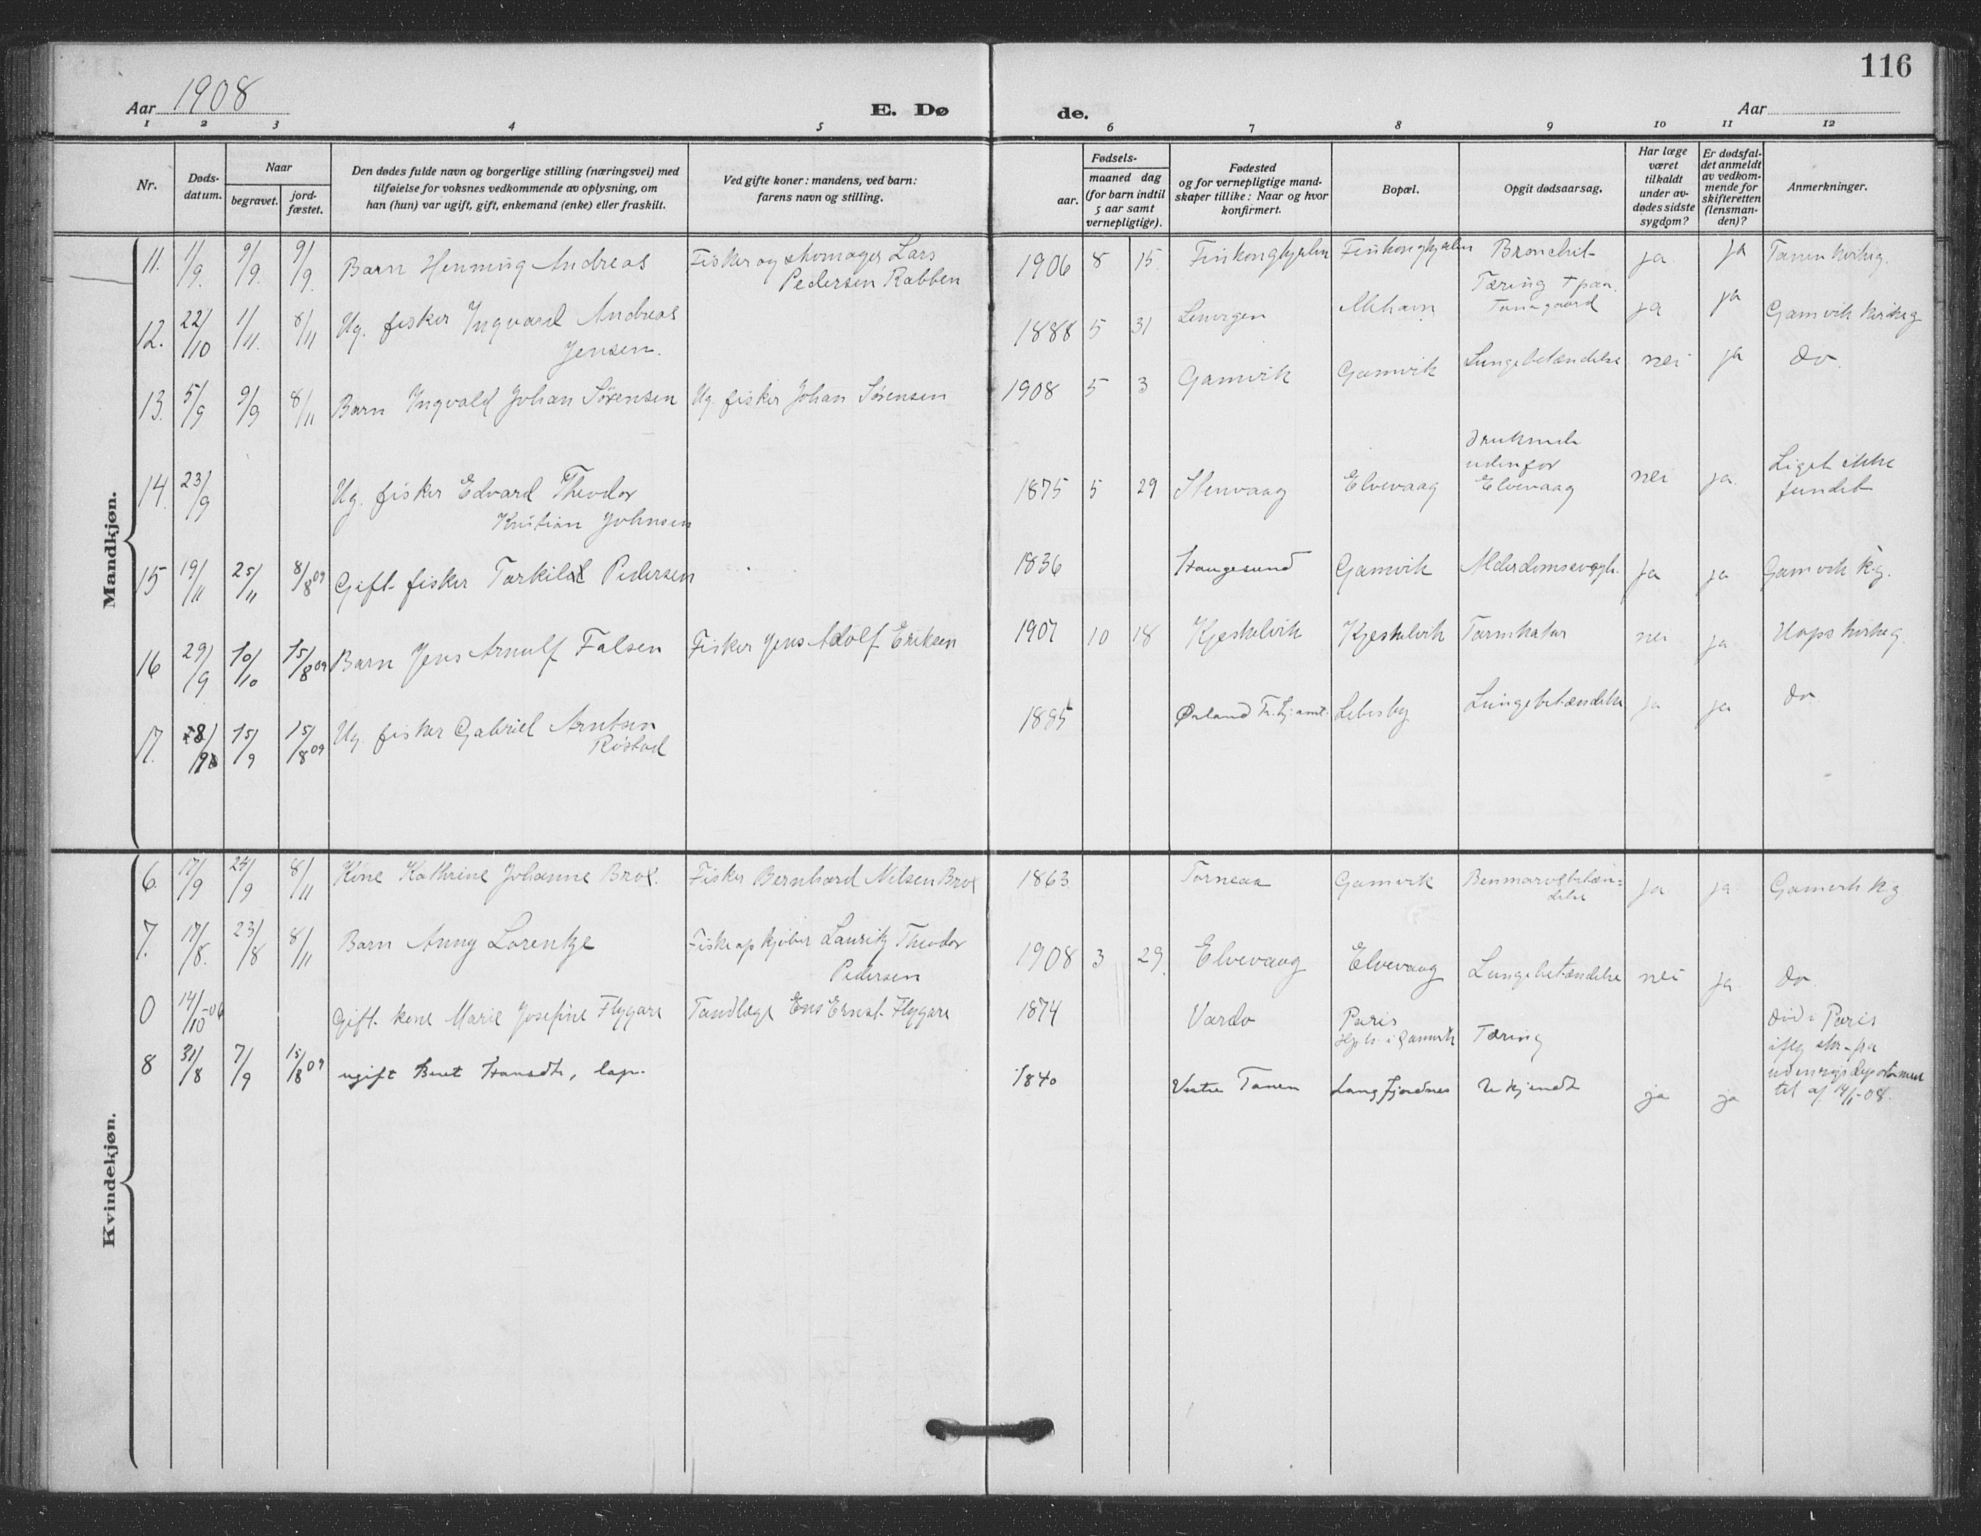 116
Aar 1908
E. Dø de.
Aar
1 2 3 4 5 6 7 8 9 10 11 12
Nr.
Døds-
datum.
Naar
begravet.
jord-
fæstet.
Den dødes fulde navn og borgerlige stilling (næringsvei) med
tilføielse for voksnes vedkommende av oplysning, om
han (hun) var ugift, gift, enkemand (enke) eller fraskilt.
Ved gifte koner: mandens, ved barn:
farens navn og stilling.
Fødsels-
aar.
maaned dag
(for barn indtil
5 aar samt
vernepligtige).
Fødested
og for vernepligtige mand-
skaper tillike: Naar og hvor
konfirmert.
Bopæl.
Opgit dødsaarsag.
Har læge
været
tilkaldt
under av-
dødes sidste
sygdom?
Er dødsfal-
det anmeldt
av vedkom-
mende for
skifteretten
(lensman-
den)?
Anmerkninger.
Mandkjøn.
11. 1/9. 9/9. 9/9. Barn Henning Andreas Fisker og skomager Lars 1906 8 15 Finkongkjeilen Finkongkjeilen Bronchit ja ja Tanen kirkeg.
Pedersen Rabben
12. 22/10 1/11. 8/11 Ug. fisker Ingvard Andreas 1888 5 31 Lenvigen Mehavn Tæring ja ja Gamvik kirkeg
Jensen.
13. 5/9 9/9 8/11 Barn Ingvald Johan Sørensen Ug. fisker Johan Sørensen 1908 5 3 Gamvik Gamvik Lungebetændelse nei ja do.
14. 23/9 Ug. fisker Edvard Theodor 1875 5 29 Stenvaag Elvevaag Druknede nei ja Liget ikke
Kristian Johnsen udenfor fundet
Elvevaag
15 19/11 25/11 8/8 09 Gift fisker Tarkild Pedersen 1836 Haugesund Gamvik Alderdomssvagh. ja ja Gamvik k.g.
16 29/9 10/10 15/8 09 Barn Jens Arnulf Falsen Fisker Jens Adolf Eriksen 1907 10 18 Kjeskelvik Kjeskelvik Tarmkatar nei ja Hops kirkeg.
17. 8/9 15/9 15/8 09 Ug. fisker Gabriel Arntsen 1885 Ørland Tr.hj.amt. Lebesby Lungebetændelse ja ja do.
Røstad
Kvindekjøn.
6. 17/9 24/9 8/11 Kone Kathrine Johanne Brox. Fisker Bernhard Nilsen Brox 1863 Torneaa Gamvik Benmarvsbetæn= ja ja Gamvik k.g
delse
7. 17/8. 23/8 8/11 Barn Anny Lorentze Fiskeopkjøber Lauritz Theodor 1908 3 29. Elvevaag Elvevaag Lungebetændelse nei ja do.
Pedersen
0 14/10-06 Gift kone Marie Josefine Flygare Tandlæge Ernst Flygare 1874 Vardø Paris Tæring Død i Paris
8 31/8 7/9 15/8 09 ugift Beret Hansdt, lap. 1840 Vestre Tanen Langfjordnes Ukjendt ja ja
til af 14/1-08.